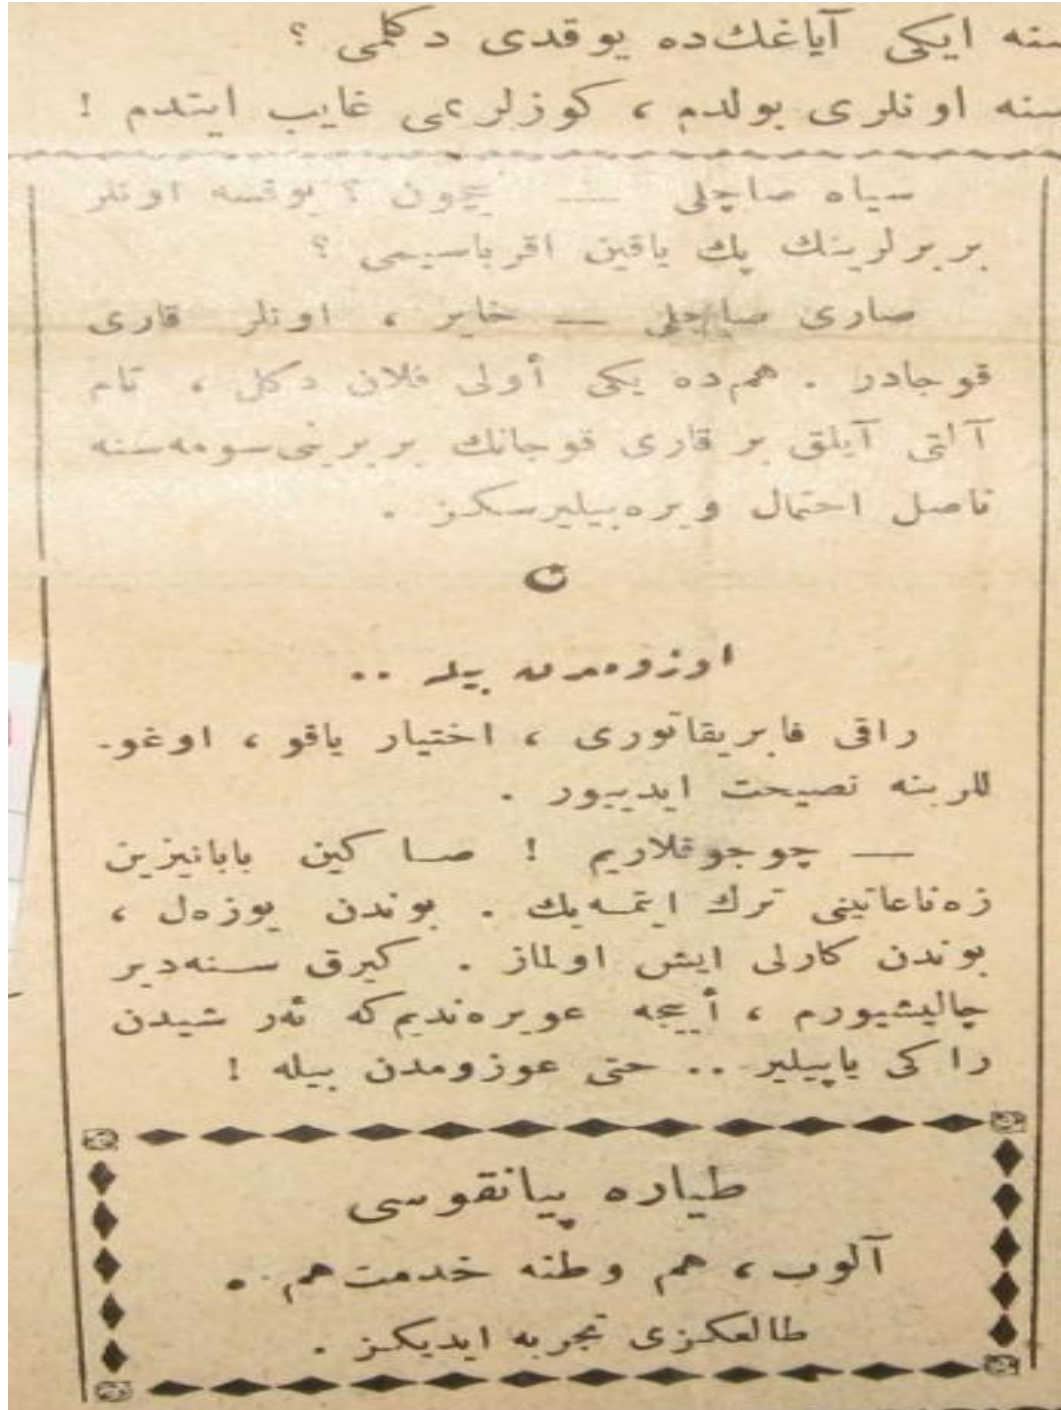 سنه ایكی آیاغك‌ده یوقدی دكلمی ؟
سنه اونلری بولدم ، كوزلریمی غایب ایتدم !
سیاه صاچلی — نیچون ؟ یوقسه اونلر
بربرلرینك پك یاقین اقرباسیمی ؟
صاری صاچلی — خایر ، اونلر قاری
قوجادر . هم‌ده یكی أولی فلان دكل ، تام
آلتی آیلق بر قاری قوجانك بربرینی سومه‌سنه
ناصل احتمال ویره‌بیلیرسكز .
اوزومدن بیله ..
راقی فابریقاتوری ، اختیار یاقو ، اوغو-
للرینه نصیحت ایدییور .
— چوجوقلاریم ! صاكین بابانیزین
زه‌ناعاتینی ترك ایتمه‌یك . بوندن یوزه‌ل ،
بوندن كارلی ایش اولماز . كیرق سنه‌دیر
چالیشیورم ، أییجه عویره‌ندیم‌كه ئه‌ر شیدن
راكی یاپیلیر .. حتی عوزومدن بیله !
طیاره پیانقوسی
آلوب ، هم وطنه خدمت هم .
طالعكزی تجربه ایدیكز .